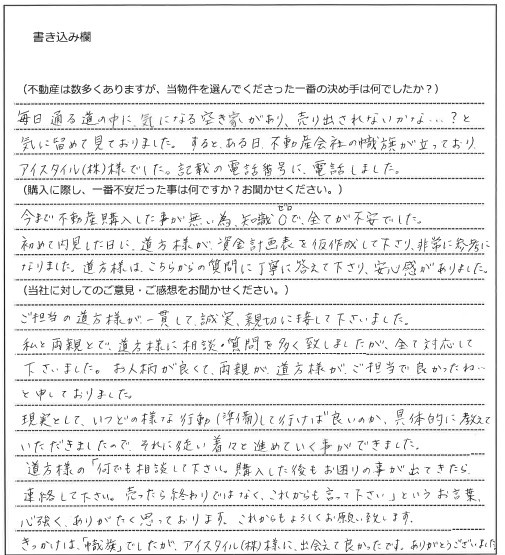 書き込み欄
（不動産は数多くありますが、当物件を選んでくださった一番の決め手は何でしたか？）
毎日通る道の中に、気になる空き家があり、売り出されないかな…？と
気に留めて見ておりました。すると、ある日、不動産会社の幟旗が立っており
アイスタイル(株)様でした。記載の電話番号に、電話しました。
（購入に際し、一番不安だった事は何ですか？お聞かせください。）
今まで不動産購入した事が無い為、知識0で、全てが不安でした。
ゼロ
初めて内見した日に、道方様が、資金計画表を仮作成して下さり、非常に参考に
なりました。道方様は、こちらからの質問に丁寧に答えて下さり、安心感がありました。
（当社に対してのご意見・ご感想をお聞かせください。）
ご担当の道方様が、一貫して、誠実、親切に接して下さいました。
私と両親とで、道方様に相談・質問を多く致しましたが、全て対応して
下さいました。お人柄が良くて、両親が、道方様が、ご担当で良かったね…
と申しておりました。
現実として、いつどの様な行動(準備)して行けば良いのか、具体的に教えて
いただきましたので、それに従い着々と進めていく事ができました。
道方様の「何でも相談して下さい。購入した後もお困りの事が出てきたら、
連絡して下さい。売ったら終わりではなく、これからも言って下さい」というお言葉、
心強く、ありがたく思っております。これからもよろしくお願い致します。
きっかけは、「幟旗」でしたが、アイスタイル(株)様に、出会えて良かったです。ありがとうございました